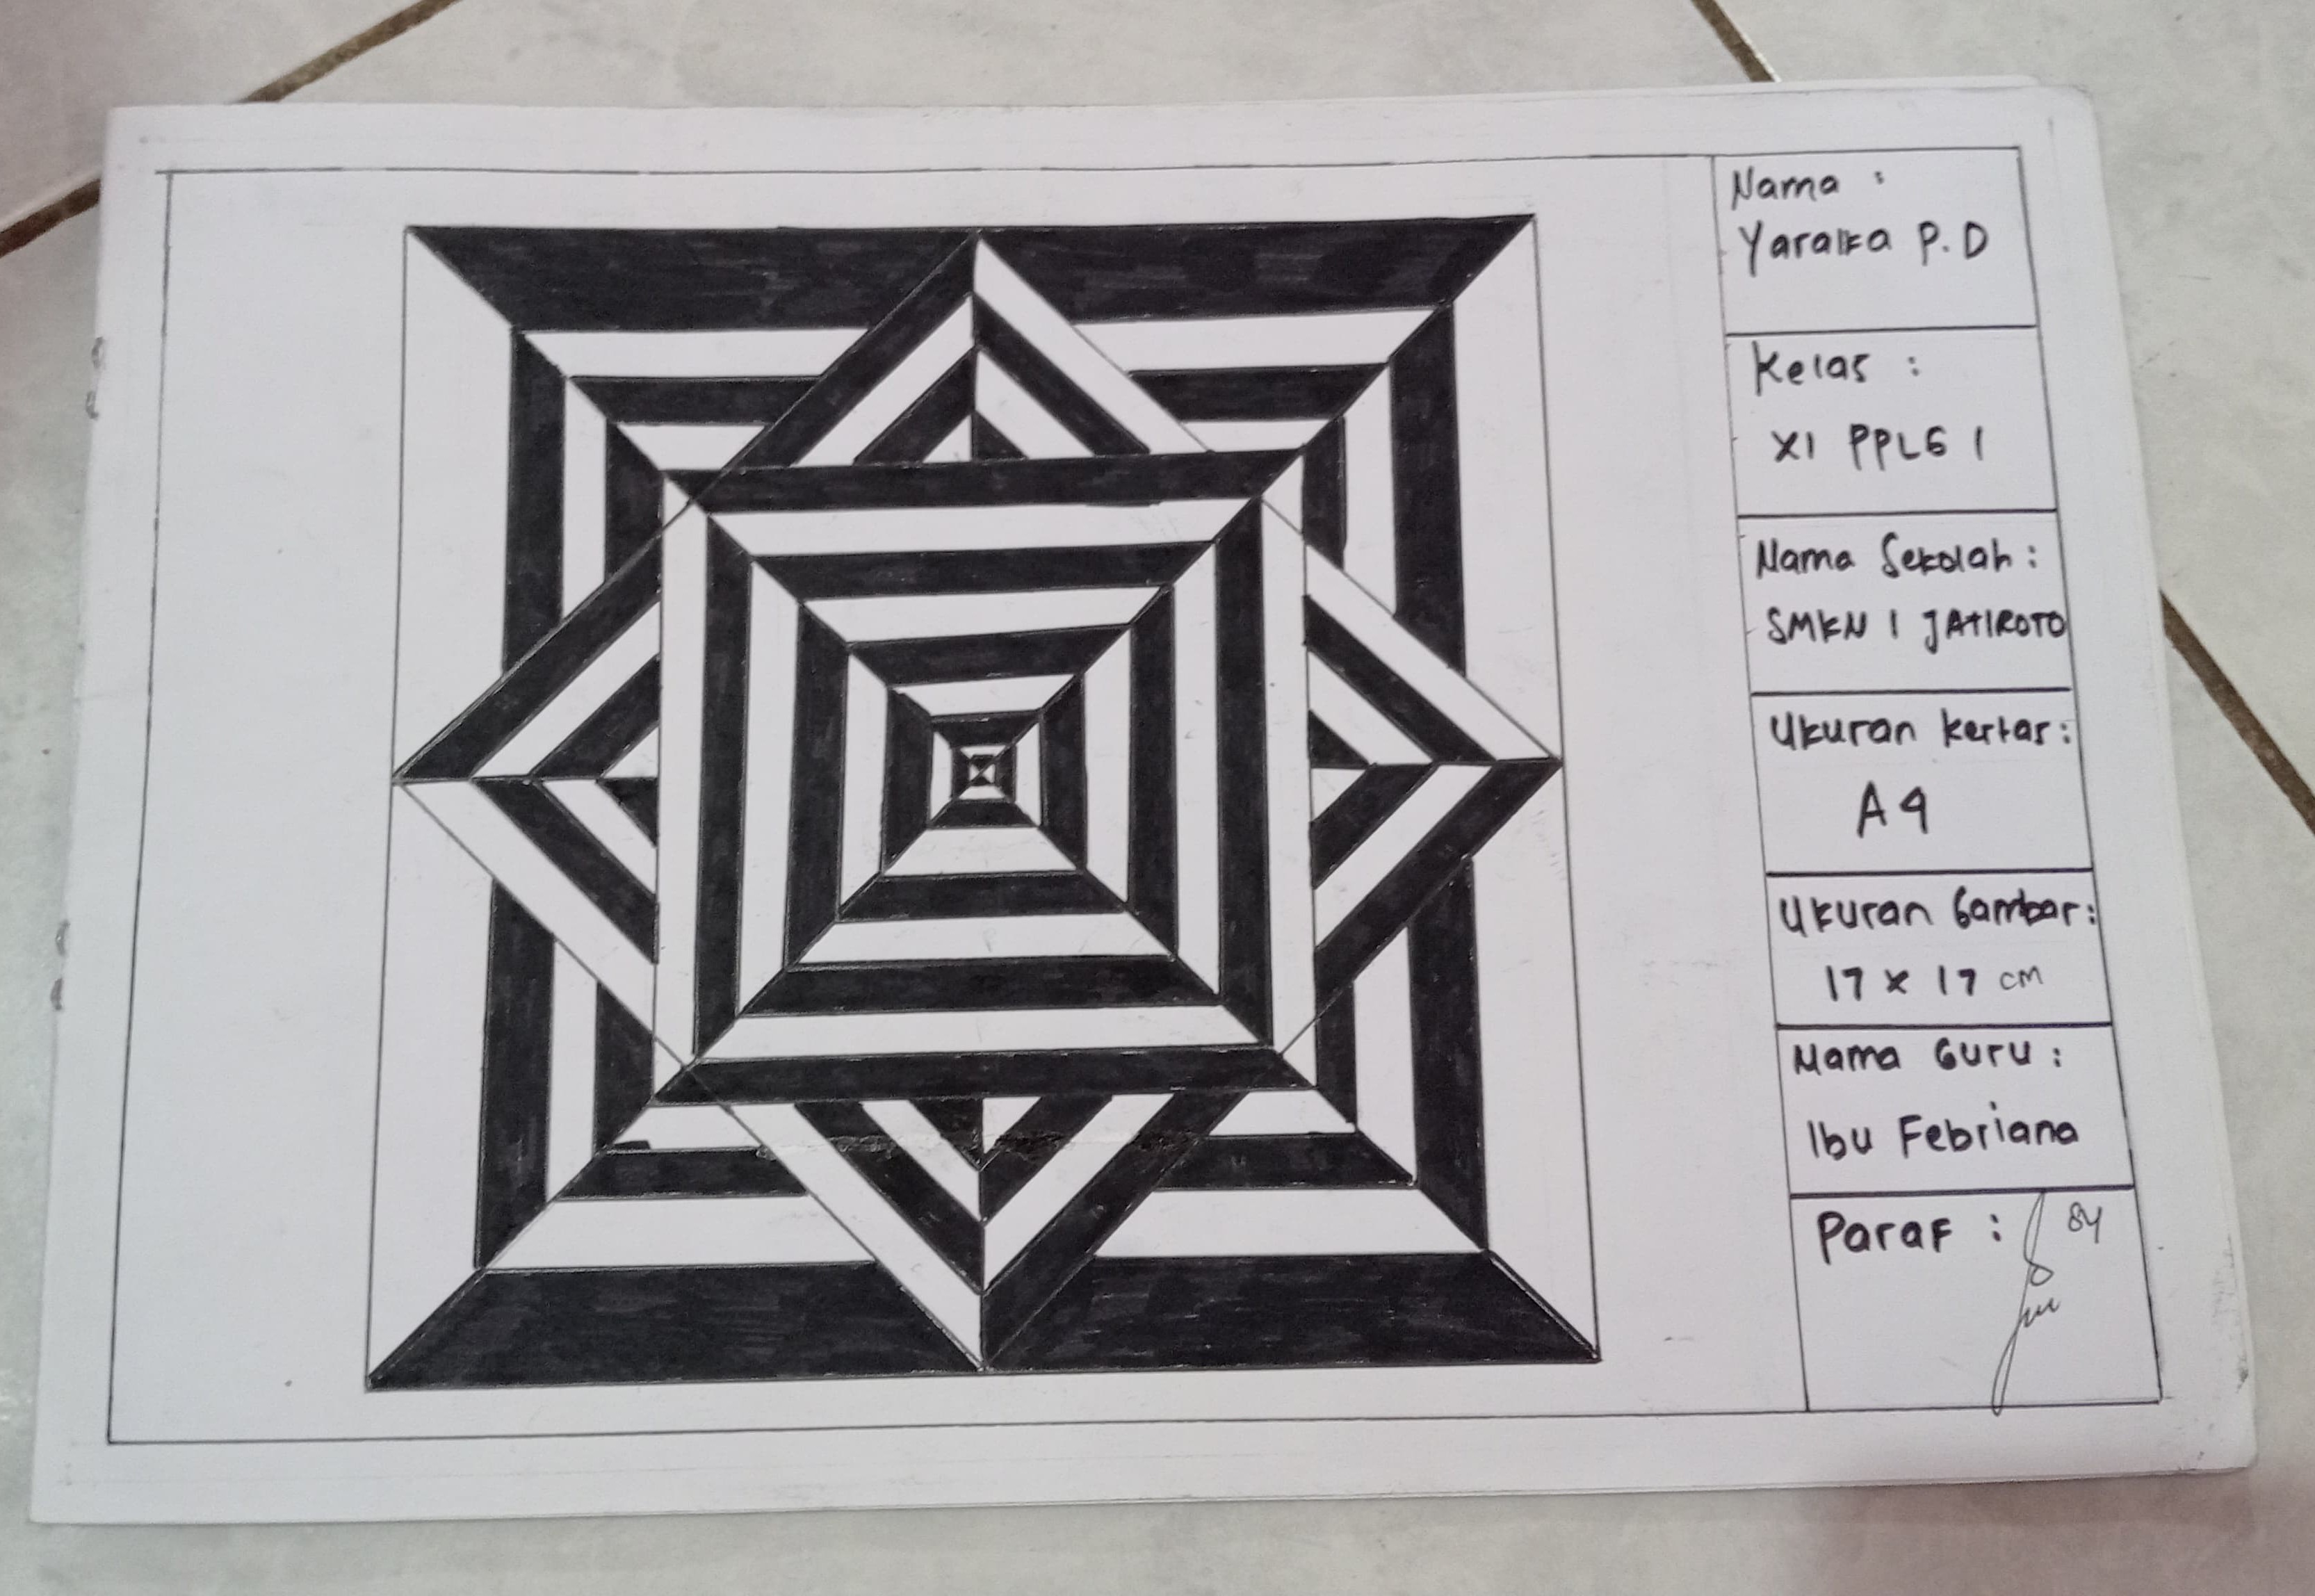 Nama :
Yaraka P.D
Kelas :
XI PPLG 1
Nama Sekolah :
SMKN 1 JATIROTO
Ukuran kertas :
A4
Ukuran Gambar :
17 x 17 cm
Nama Guru :
Ibu Febriana
Paraf :
84